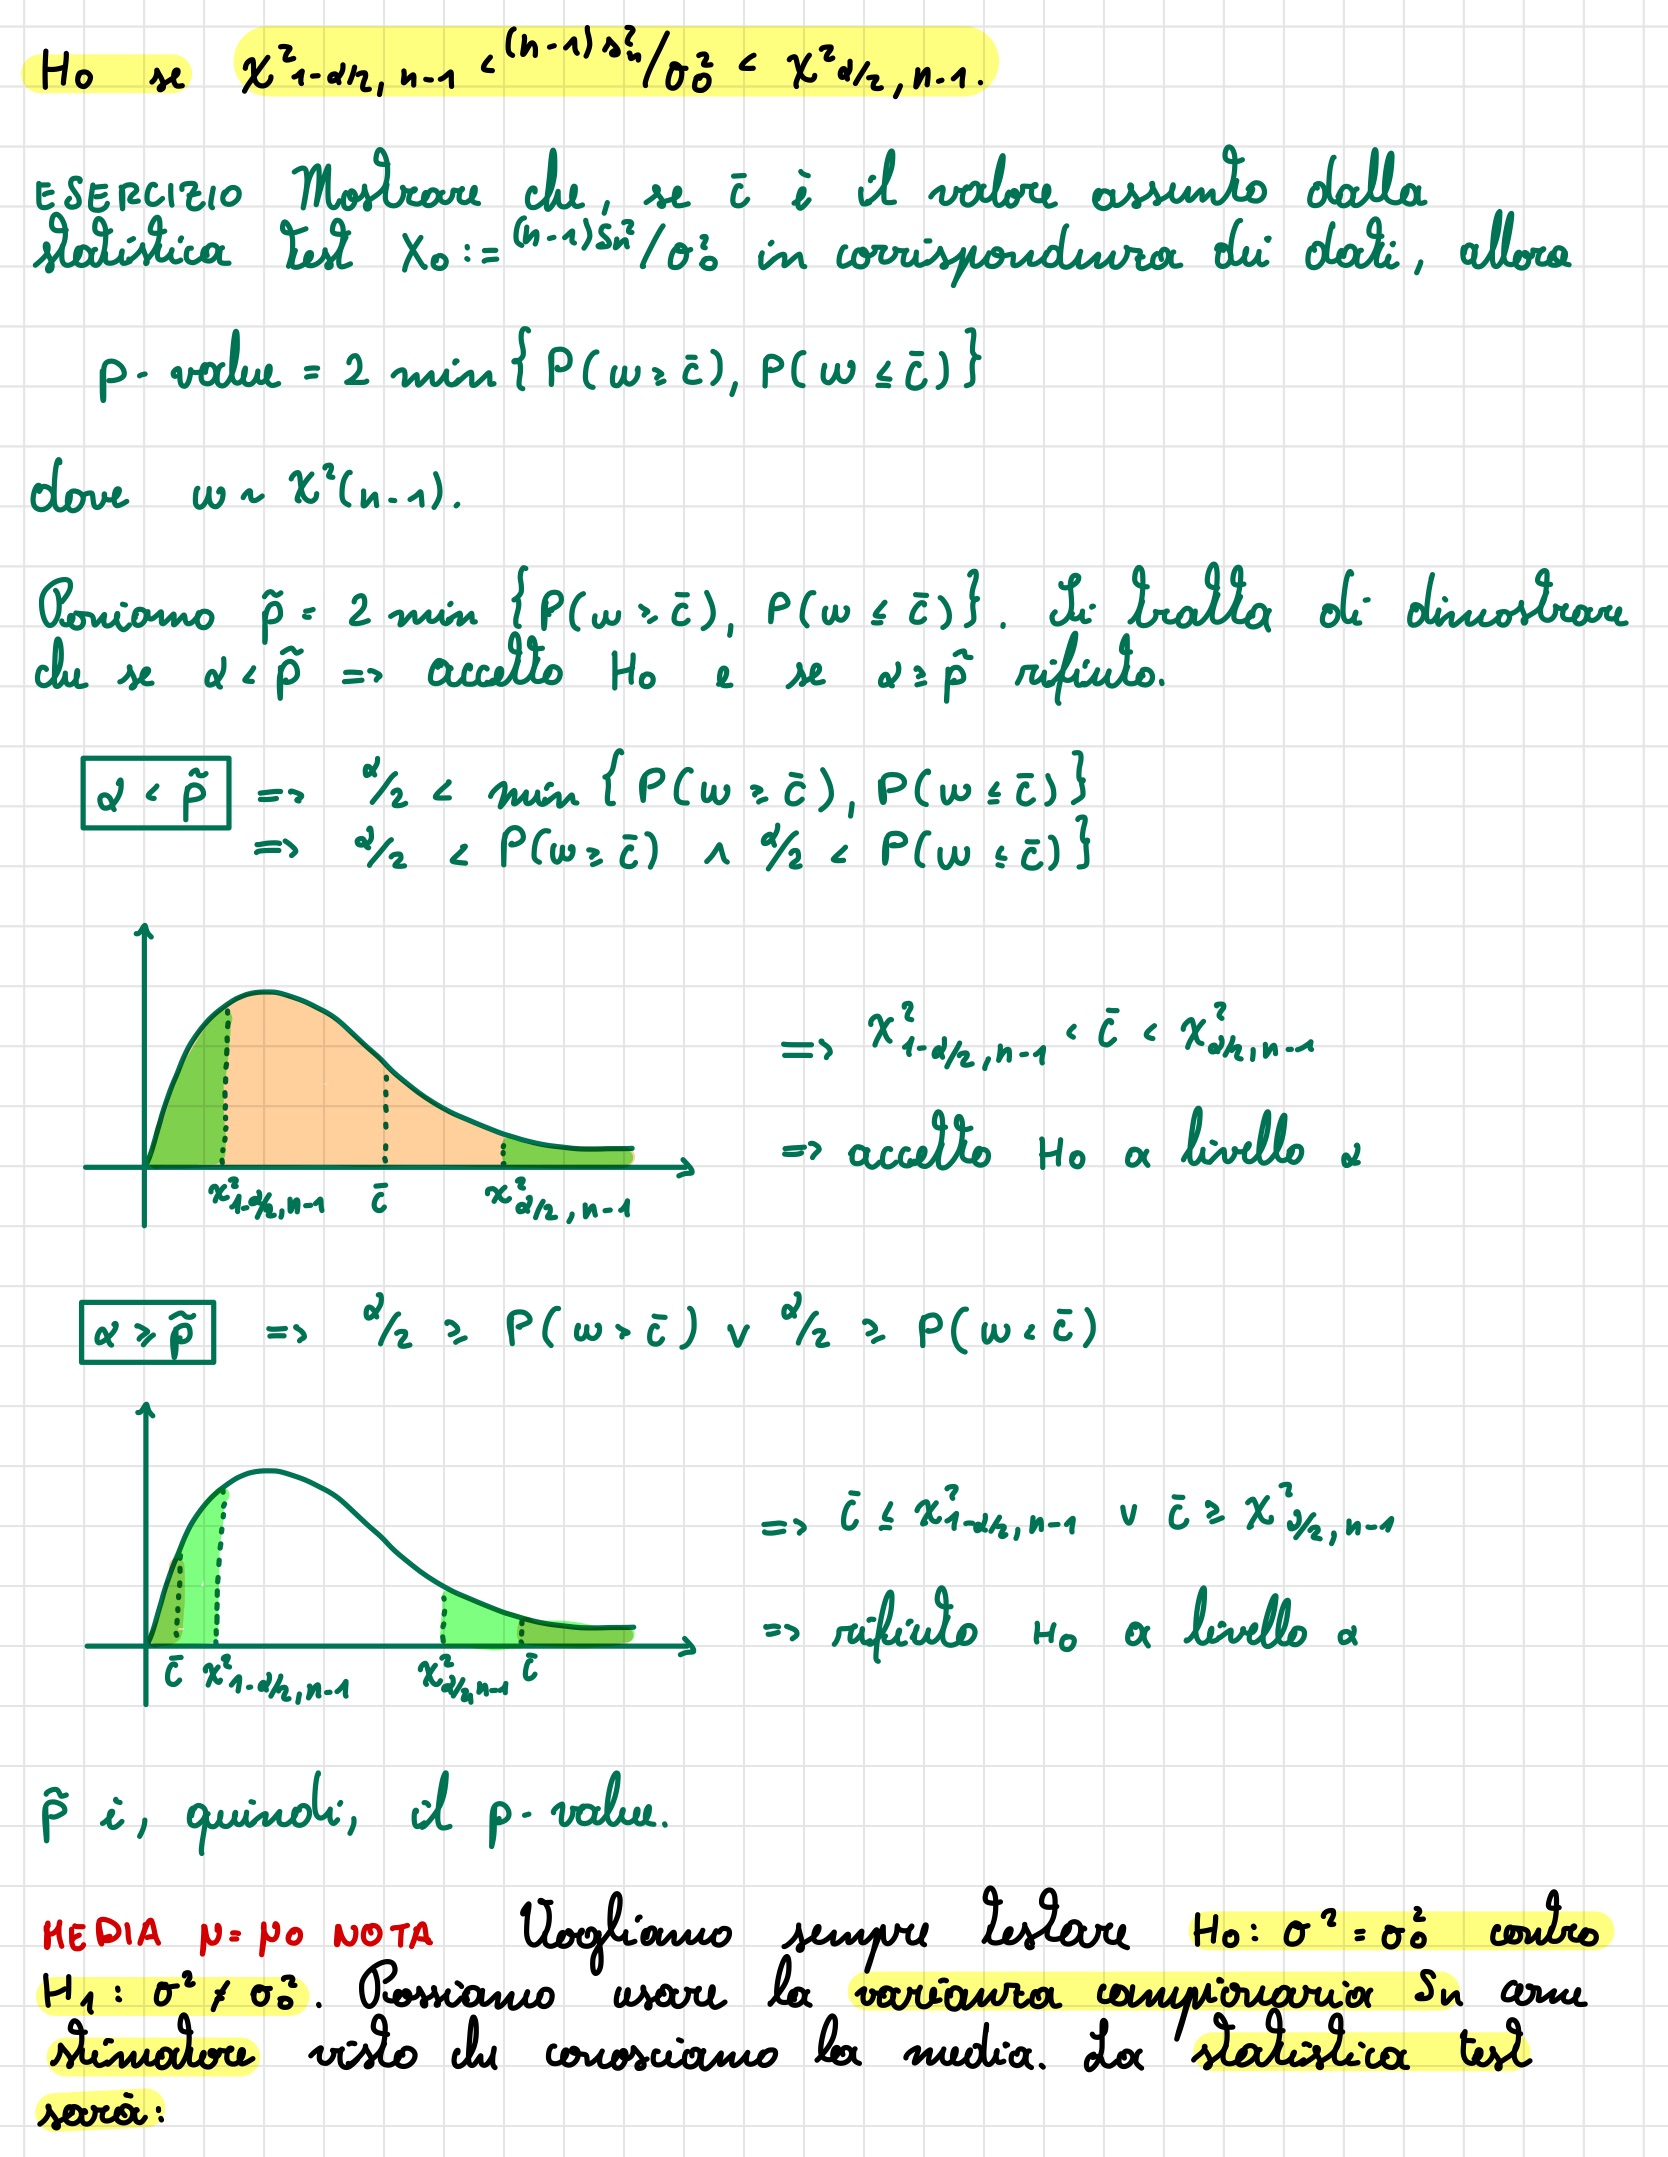 H0 se χ²1-α/2, n-1 < (n-1)s²n/σ0² < χ²α/2, n-1.
ESERCIZIO Mostrare che, se c̄ è il valore assunto dalla
statistica test X0 := (n-1)Sn²/σ0² in corrispondenza dei dati, allora
p-value = 2 min { P(W ≥ c̄), P(W ≤ c̄) }
dove W ~ χ²(n-1).
Poniamo p̃ = 2 min { P(W ≥ c̄), P(W ≤ c̄) }. Si tratta di dimostrare
che se α < p̃ => accetto H0 e se α ≥ p̃ rifiuto.
α < p̃ => α/2 < min { P(W ≥ c̄), P(W ≤ c̄) }
=> α/2 < P(W ≥ c̄) ∧ α/2 < P(W ≤ c̄) }
=> χ²1-α/2, n-1 < c̄ < χ²α/2, n-1
=> accetto H0 a livello α
χ²1-α/2, n-1 c̄ χ²α/2, n-1
α ≥ p̃ => α/2 ≥ P(W > c̄) ∨ α/2 ≥ P(W < c̄)
=> c̄ ≤ χ²1-α/2, n-1 ∨ c̄ ≥ χ²α/2, n-1
=> rifiuto H0 a livello α
c̄ χ²1-α/2, n-1 χ²α/2, n-1 c̄
p̃ è, quindi, il p-value.
MEDIA μ = μ0 NOTA Vogliamo sempre testare H0: σ² = σ0² contro
H1: σ² ≠ σ0². Possiamo usare la varianza campionaria Sn come
stimatore visto che conosciamo la media. La statistica test
sarà: